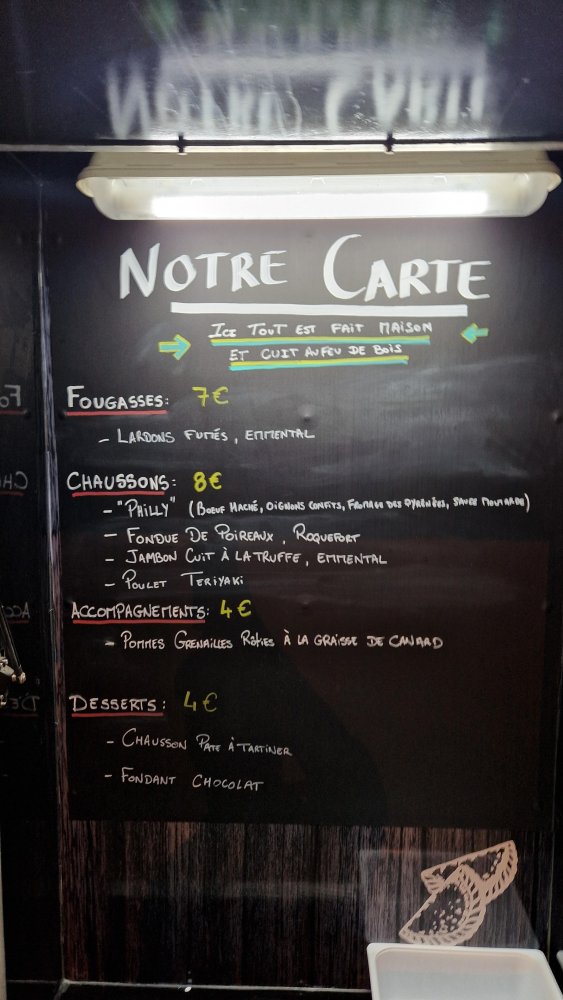 NOTRE CARTE
ICI TOUT EST FAIT MAISON
ET CUIT AU FEU DE BOIS
FOUGASSES: 7€
- LARDONS FUMÉS, EMMENTAL
CHAUSSONS: 8€
- "PHILLY" (BOEUF HACHÉ, OIGNONS CONFITS, FROMAGE DES PYRÉNÉES, SAUCE MOUTARDE)
- FONDUE DE POIREAUX, ROQUEFORT
- JAMBON CUIT À LA TRUFFE, EMMENTAL
- POULET TERIYAKI
ACCOMPAGNEMENTS: 4€
- POMMES GRENAILLES RÔTIES À LA GRAISSE DE CANARD
DESSERTS: 4€
- CHAUSSON PATE À TARTINER
- FONDANT CHOCOLAT